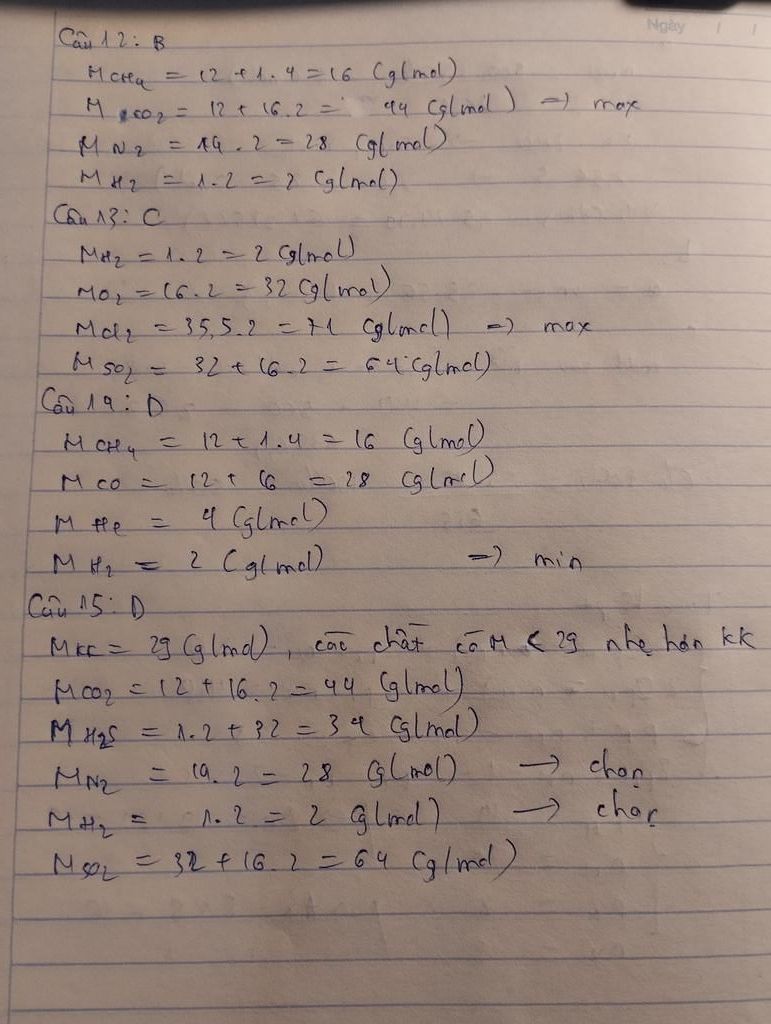 Ngày / /
Câu 12: B
M CH4 = 12 + 1.4 = 16 (g/mol)
M CO2 = 12 + 16.2 = 44 (g/mol) => max
M N2 = 14.2 = 28 (g/mol)
M H2 = 1.2 = 2 (g/mol)
Câu 13: C
M H2 = 1.2 = 2 (g/mol)
M O2 = 16.2 = 32 (g/mol)
M Cl2 = 35,5.2 = 71 (g/mol) => max
M SO2 = 32 + 16.2 = 64 (g/mol)
Câu 14: D
M CH4 = 12 + 1.4 = 16 (g/mol)
M CO = 12 + 16 = 28 (g/mol)
M He = 4 (g/mol)
M H2 = 2 (g/mol) => min
Câu 15: D
M KK = 29 (g/mol), các chất có M < 29 nhẹ hơn kk
M CO2 = 12 + 16.2 = 44 (g/mol)
M H2S = 1.2 + 32 = 34 (g/mol)
M N2 = 14.2 = 28 (g/mol) → chọn
M H2 = 1.2 = 2 (g/mol) → chọn
M SO2 = 32 + 16.2 = 64 (g/mol)